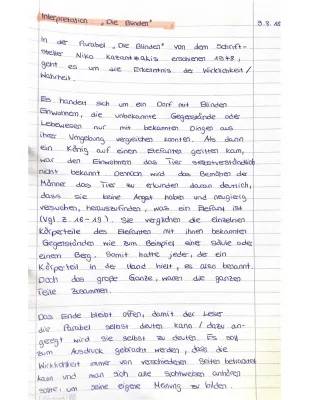 Interpretation "Die Blinden" 9.8.18
In der Parabel "Die Blinden" von dem Schrift-
steller Niko Kazantzakis erschienen 1978,
geht es um die Erkenntnis der Wirklichkeit/
Wahrheit.
Es handelt sich um ein Dorf mit Blinden
Einwohnern, die unbekannte Gegenstände oder
Lebewesen nur mit bekannten Dingen aus
ihrer Umgebung vergleichen konnten. Als dann
ein König auf einen Elefanten geritten kam,
war den Einwohnern das Tier selbstverständlich
nicht bekannt. Dennoch wird das Bemühen der
Männer das Tier zu erkunden daran deutlich,
dass sie keine Angst haben und neugierig
versuchen, herauszufinden, was ein Elefant ist
(Vgl. Z. 16-19). Sie verglichen die einzelnen
Körperteile des Elefanten mit ihnen bekannten
Gegenständen wie zum Beispiel einer Säule oder
einem Berg. Somit hatte jeder, der ein
Körperteil in der Hand hielt, es also benannt.
Doch das große Ganze, waren die ganzen
Teile zusammen.
Das Ende bleibt offen, damit der Leser
die Parabel selbst deuten kann / dazu an-
geregt wird sie selbst zu deuten. Es soll
zum Ausdruck gebracht werden, dass die
Wirklichkeit immer von verschiedenen Seiten betrachtet
kann und man sich alle Sichtweisen anhören
sollte, um seine eigene Meinung zu bilden.